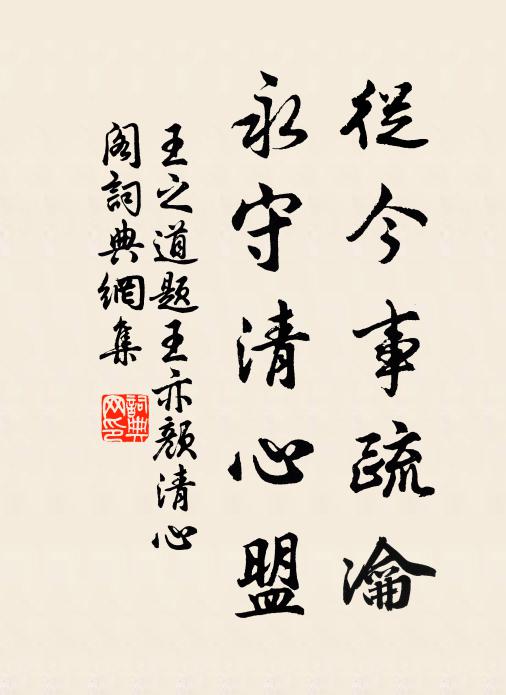 從今事疏瀹
永守清心盟
王之道題王亦顏清心
閣詞典網集
詞典
网印